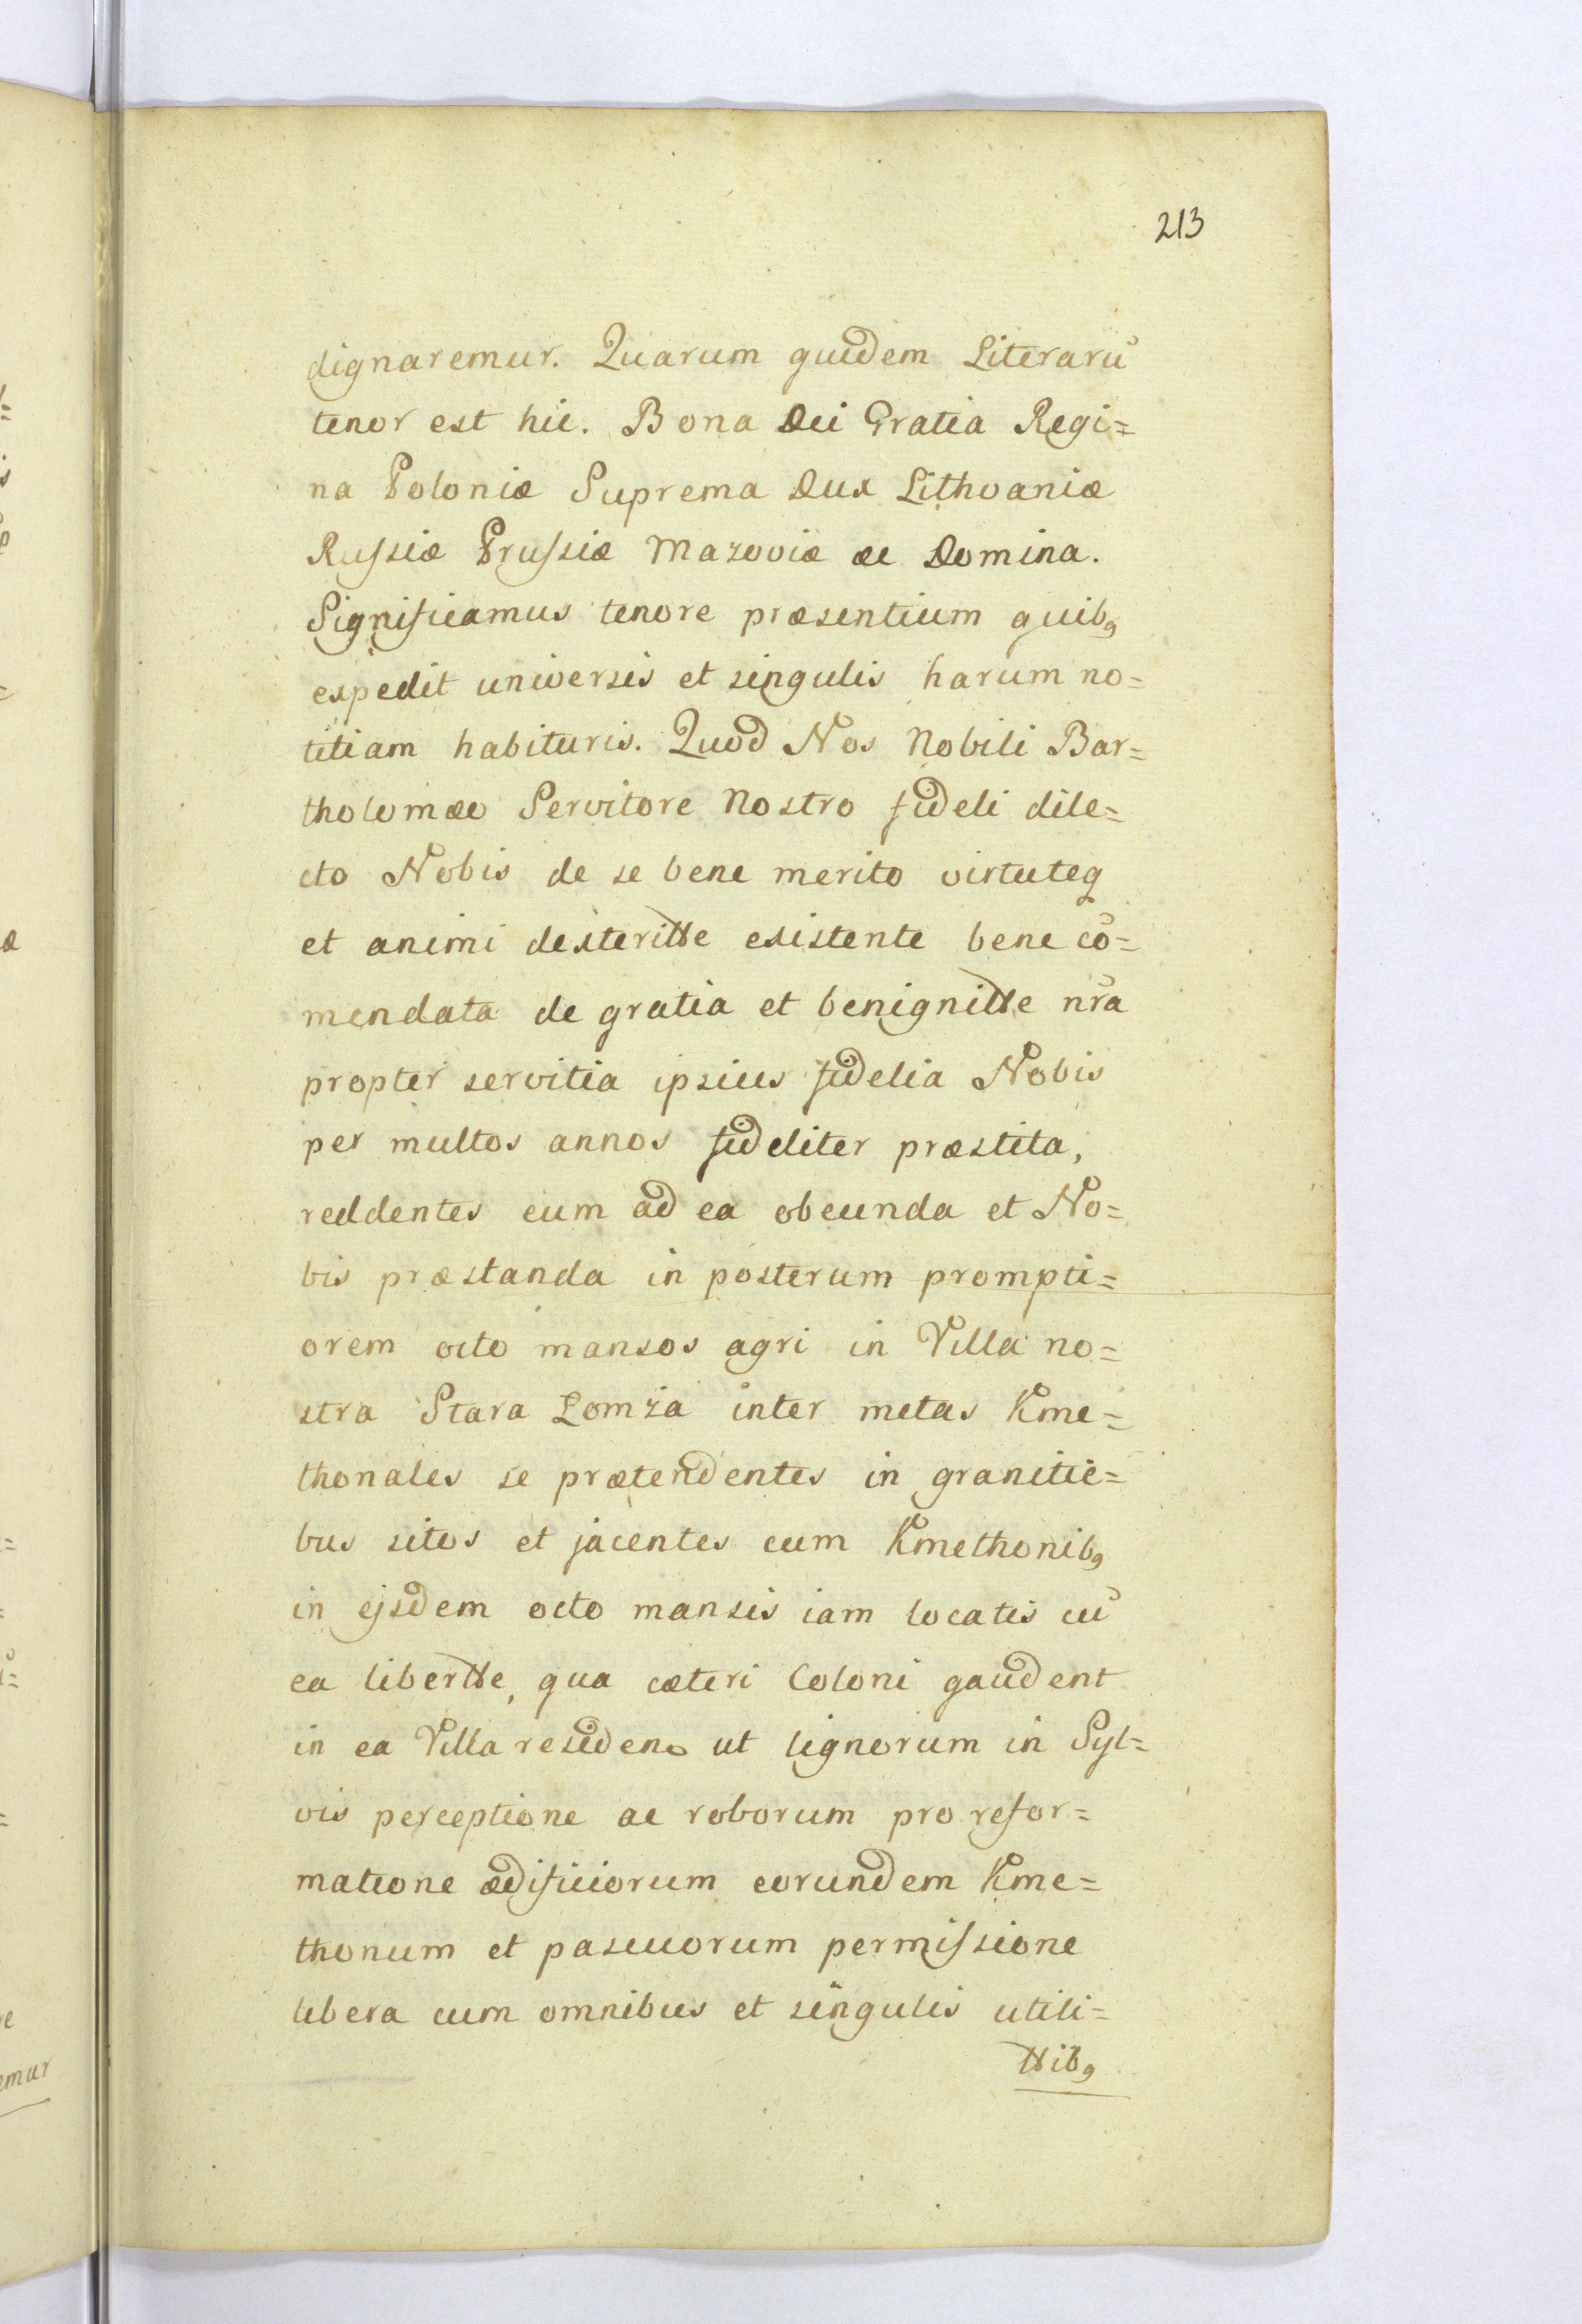 213
dignaremur. Quarum quidem Literarū
tenor est hic. Bona Dei Gratia Regi=
na Poloniæ Suprema Dux Lithvaniæ
Russiæ Prussiæ Mazoviæ ac Domina.
Significamus tenore præsentium quibꝫ
expedit universis et singulis harum no=
titiam habituris. Quod Nos Nobili Bar=
tholomæo Servitore Nostro fideli dile=
cto Nobis de se bene merito virtuteq
et animi dexteritte existente bene cō=
mendata de gratia et benignitte nr̄a
propter servitia ipsius fidelia Nobis
per multos annos fideliter præstita,
reddentes eum ad ea obeunda et No=
bis præstanda in posterum prompti=
orem octo mansos agri in Villa no=
stra Stara Łomża inter metas Kme=
thonales se prætendentes in granitie=
bus sitos et jacentes cum Kmethonibꝫ
in ejsdem octo mansis iam locatis cū
ea libertte, qua cæteri Coloni gaudent
in ea Villa residen. ut lignorum in Syl=
vis perceptione ac roborum pro refor=
matione ædificiorum eorundem Kme=
thonum et pascuorum permissione
libera cum omnibus et singulis utili=
ttibꝫ
emur